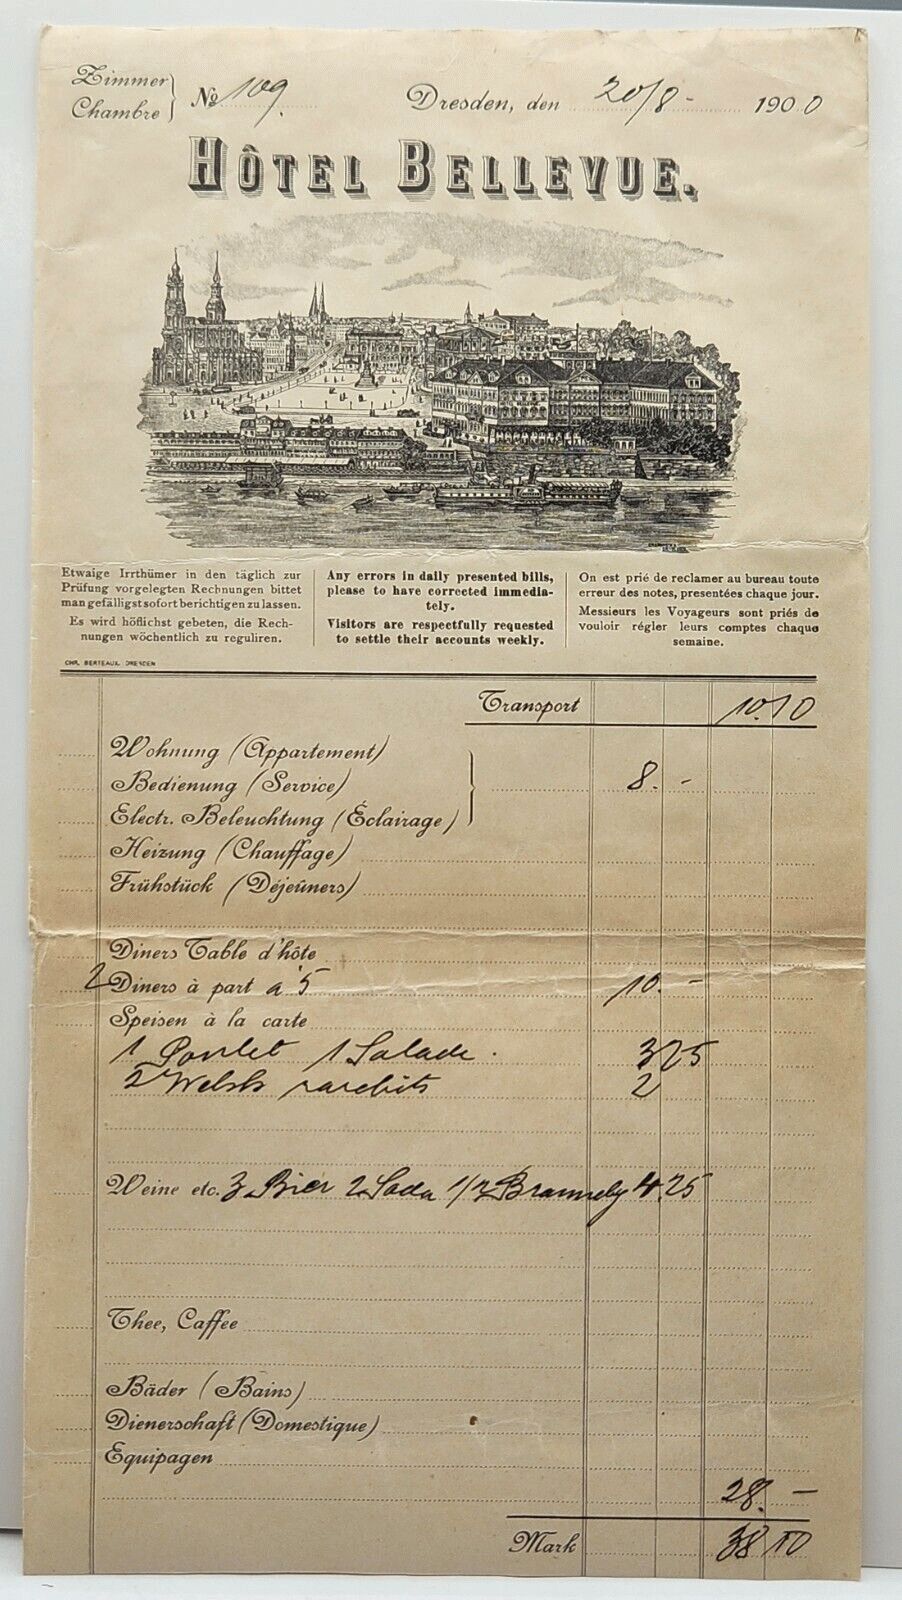 Zimmer
Chambre } No 109. Dresden, den 20/8 - 1900
HÔTEL BELLEVUE.
Etwaige Irrthümer in den täglich zur
Prüfung vorgelegten Rechnungen bittet
man gefälligst sofort berichtigen zu lassen.
Es wird höflichst gebeten, die Rech-
nungen wöchentlich zu reguliren.
Any errors in daily presented bills,
please to have corrected immedia-
tely.
Visitors are respectfully requested
to settle their accounts weekly.
On est prié de reclamer au bureau toute
erreur des notes, presentées chaque jour.
Messieurs les Voyageurs sont priés de
vouloir régler leurs comptes chaque
semaine.
CHR. BERTEAUX. DRESDEN
Transport 10.10
Wohnung (Appartement)
Bedienung (Service) 8. -
Electr. Beleuchtung (Éclairage)
Heizung (Chauffage)
Frühstück (Déjeûners)
Diners Table d'hôte
2 Diners à part à 5 10. -
Speisen à la carte
1 Poulet 1 Salade. 3 25
2 Welsh rarebits 2
Weine etc. 3 Bier 2 Soda 1/2 4.25
Thee, Caffee
Bäder (Bains)
Dienerschaft (Domestique)
Equipagen
28. -
Mark 38 10